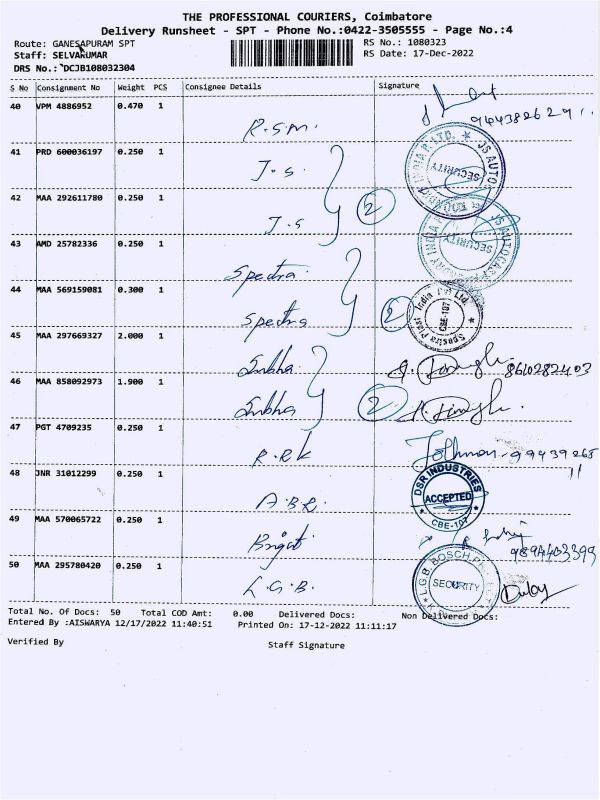 THE PROFESSIONAL COURIERS, Coimbatore
Delivery Runsheet - SPT - Phone No.:0422-3505555 - Page No.:4
Route: GANESAPURAM SPT
RS No.: 1080323
Staff: SELVAKUMAR
RS Date: 17-Dec-2022
DRS No.: DCJB108032304
S No Consignment No Weight PCS Consignee Details Signature
40 VPM 4886952 0.470 1
R.S.M.
41 PRD 600036197 0.250 1
J.S.
42 MAA 292611780 0.250 1 2
J.S
43 AMD 25782336 0.250 1
SECURITY
Spectra
44 MAA 569159081 0.300 1
Spectra 2
Spectra Plast India Pvt Ltd. CBE-107
45 MAA 297669327 2.000 1
Subha 8610282403
46 MAA 858092973 1.900 1
Subha 2
47 PGT 4709235 0.250 1
R.R.K
48 JNR 31012299 0.250 1
DSR INDUSTRIES ACCEPTED CBE-107
A.B.R.
49 MAA 570065722 0.250 1
Bright 9894403399
50 MAA 295780420 0.250 1
L.G.B. SECURITY
Total No. Of Docs: 50 Total COD Amt: 0.00 Delivered Docs: Non Delivered Docs:
Entered By :AISWARYA 12/17/2022 11:40:51 Printed On: 17-12-2022 11:11:17
Verified By Staff Signature